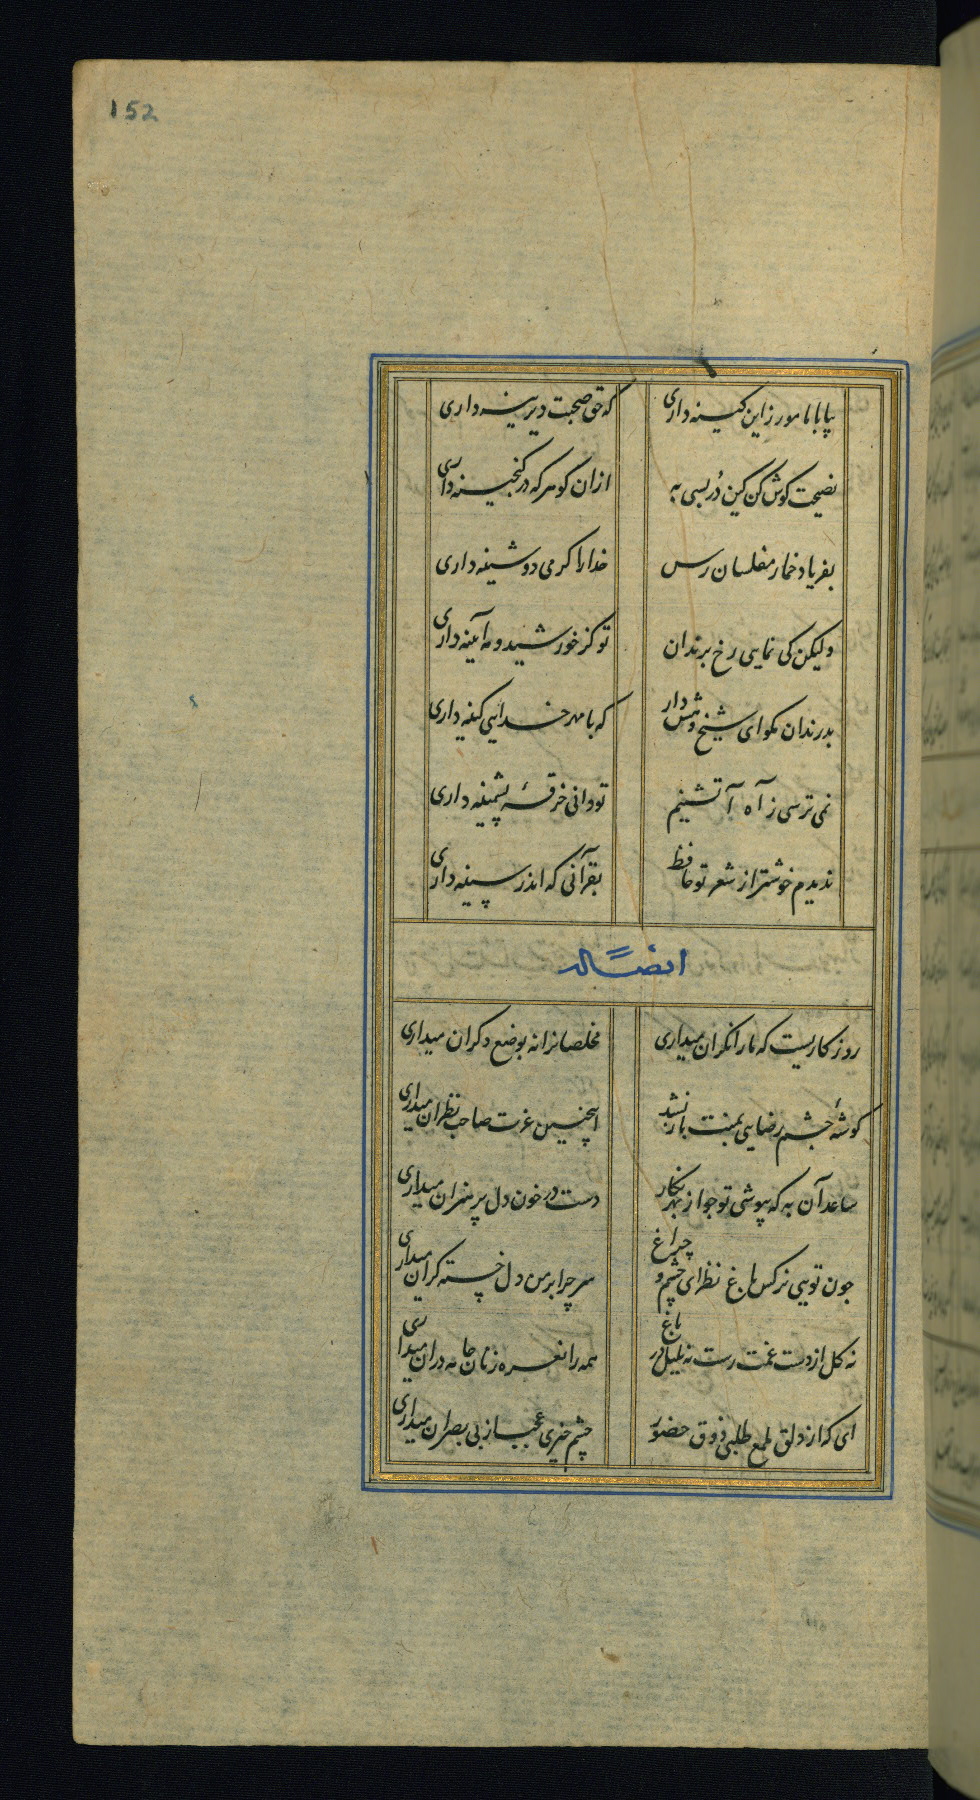 152
بیا با ما مورز این کینه داری
که حق صحبت دیرینه داری
نصیحت کوش کن کین دُر بسی به
ازان کوهر که در کنجینه داری
بفریاد خمار مفلسان رس
خدا را کر می دوشینه داری
ولیکن کی نمایی رخ برندان
تو کز خورشید و مه آیینه داری
بد رندان مکو ای شیخ و هش دار
که با مهر خدایی کینه داری
نمی ترسی ز آه آتشینم
تو دانی خرقهٔ پشمینه داری
ندیدم خوشتر از شعر تو حافظ
بقرآنی که اندر سینه داری
ایضاً له
روزکاریست که ما را نکران میداری
مخلصانرا نه بوضع دکران میداری
کوشهٔ چشم رضایی بمنت باز نشد
اینچنین عزت صاحب نظران میداری
ساعد آن به که بپوشی تو جو از بهر نکار
دست در خون دل پر هنران میداری
جون تویی نرکس باغ نظر ای چشم و چراغ
سر چرا بر من دل خسته کران میداری
نه کل از دست غمت رست نه بلبل در باغ
همه را نعره زنان جامه دران میداری
ای که از دلق ملمع طلبی ذوق حضور
چشم خیری عجب از بی بصران میداری